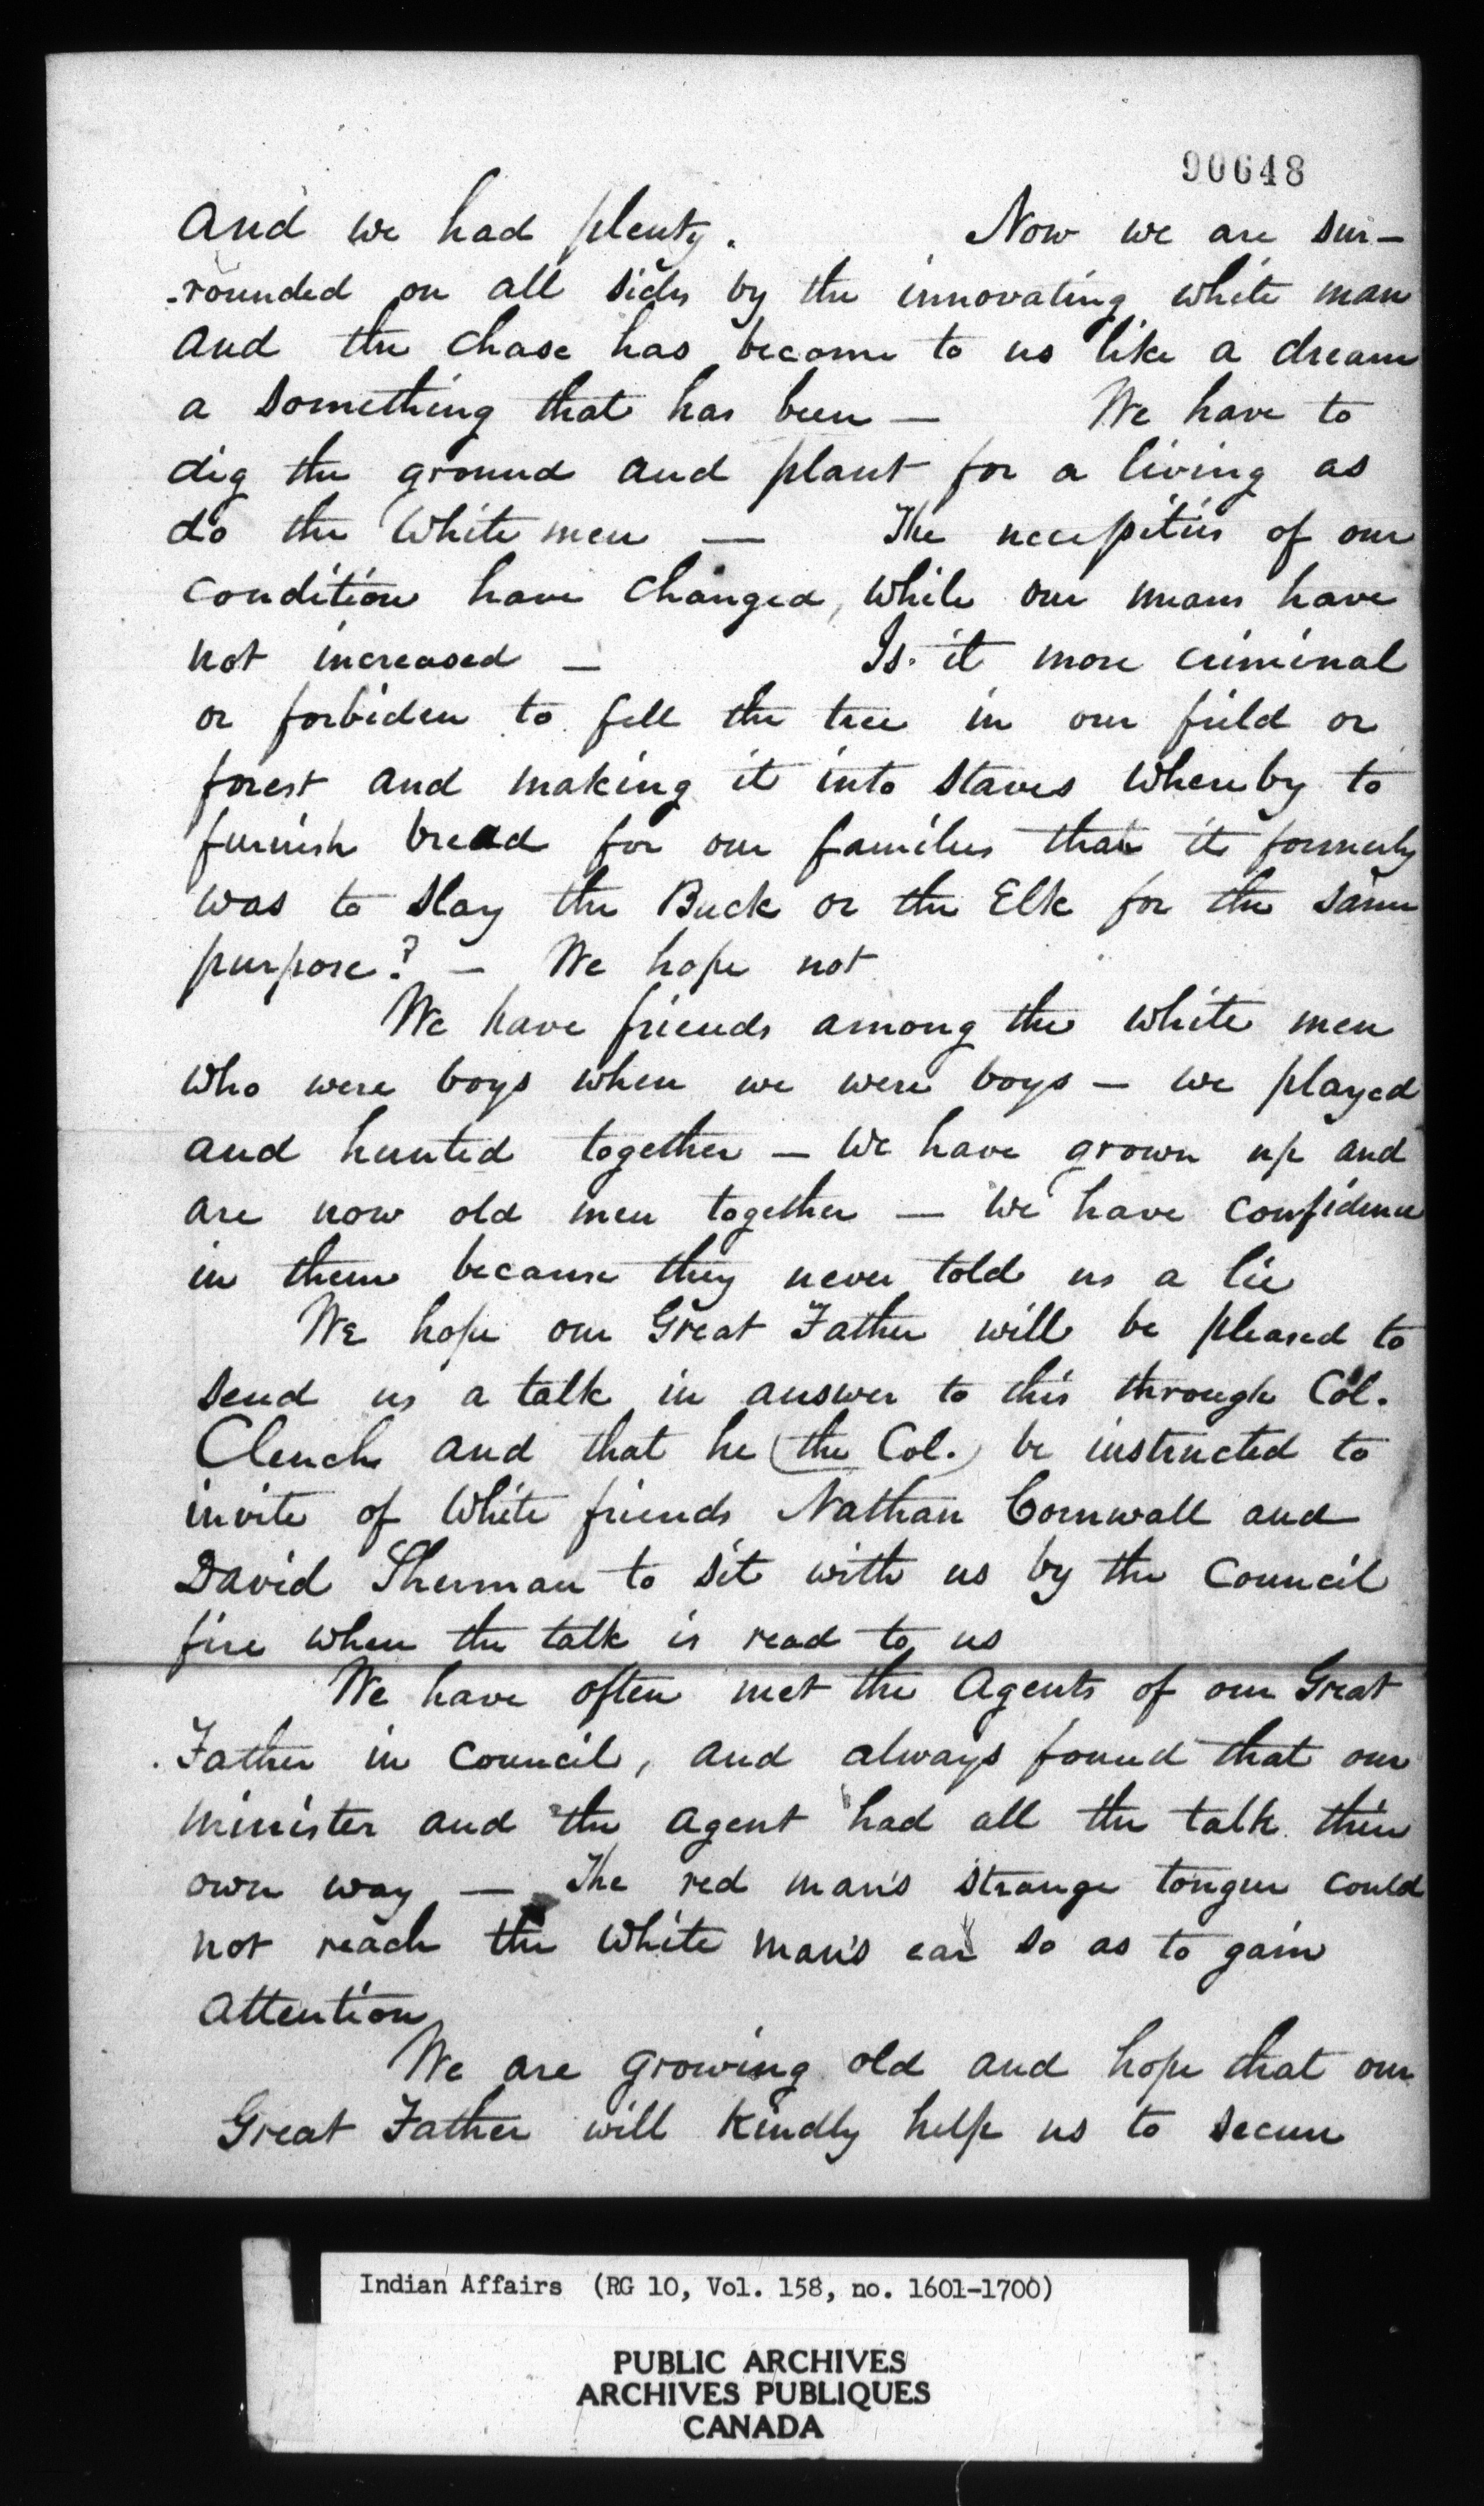 90648
and we had plenty. Now we are sur-
-rounded on all sides by the innovating white man
and the chase has become to us like a dream
a something that has been —  We have to
dig the ground and plant for a living as
do the White men — The necessities of our
condition have changed, while our means have
not increased — Is it more criminal
or forbiden to fell the tree in our field or
forest and making it into staves whereby to
furnish bread for our families than it formerly
was to slay the Buck or the Elk for the same
purpose? — We hope not
We have friends among the white men
who were boys when we were boys — we played
and hunted together — We have grown up and
are now old men together — We have confidence
in them because they never told us a lie
We hope our Great Father will be pleased to
send us a talk in answer to this through Col.
Clench and that he (the Col.) be instructed to
invite of White friends Nathan Cornwall and
David Sherman to sit with us by the Council
fire when the talk is read to us
We have often met the Agents of our Great
Father in Council, and always found that our
minister and the agent had all the talk their
own way — The red man's strange tongue could
not reach the White man's ear so as to gain
attention
We are growing old and hope that our
Great Father will kindly help us to secure
Indian Affairs (RG 10, Vol. 158, no. 1601-1700)
PUBLIC ARCHIVES
ARCHIVES PUBLIQUES
CANADA